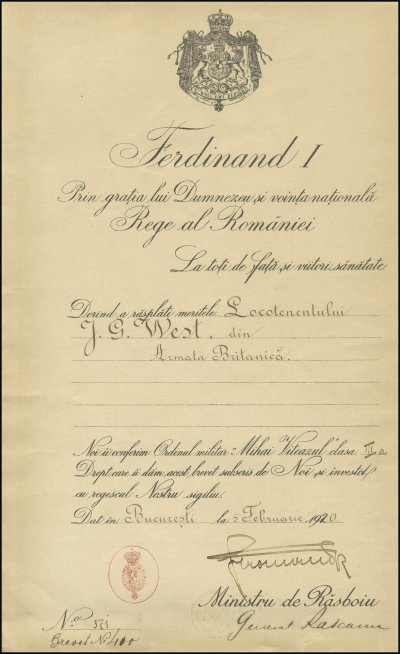 Ferdinand I
Prin grația lui Dumnezeu și voința națională
Rege al României
La toți de față și viitori, sănătate
Dorind a răsplăti meritele Locotenentului
J. G. West, din
Armata Britanică.
Noi îi conferim Ordinul militar "Mihai Viteazul" clasa III a
Drept care îi dăm acest brevet subscris de Noi și investit
cu regescul Nostru sigiliu.
Dat în București la 5 Februarie 1920.
Ministru de Răsboiu
General Rascanu
No 571
Brevet No 400